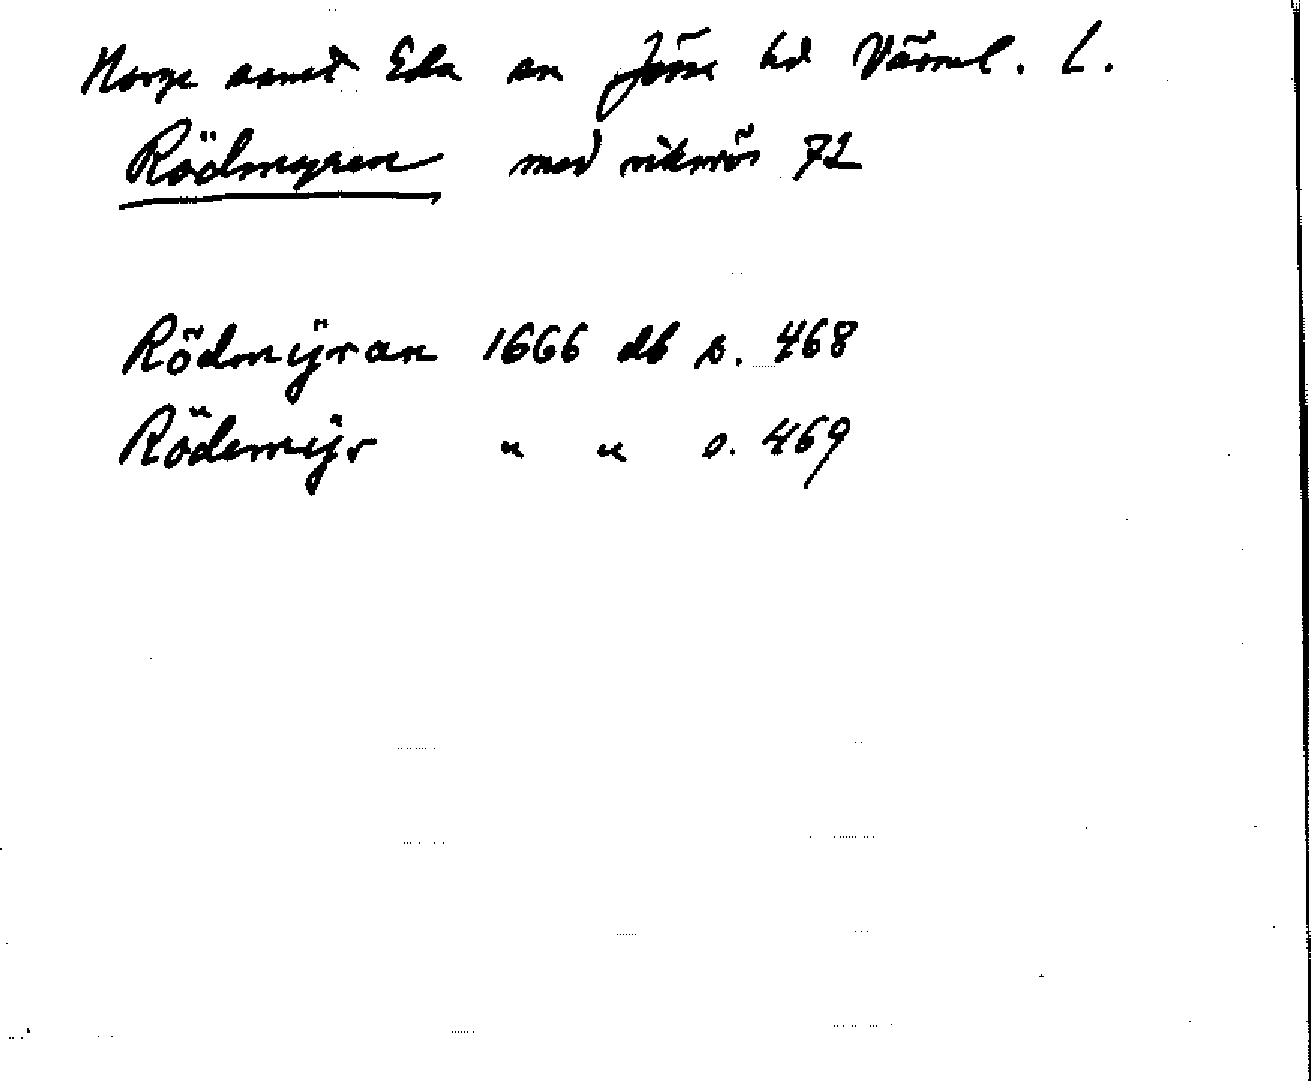 Norge samt Eda sn Jösse hd Värml. L.
Rödmyren med riksrös 71
Rödmÿran 1666 db s. 468
Rödemÿr " " s. 469